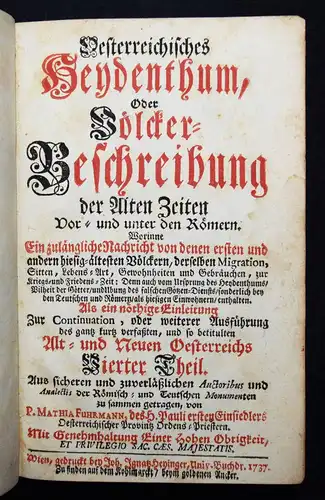 Oesterreichisches
Heydenthum,
Oder
Völcker-
Beschreibung
der Alten Zeiten
Vor- und unter den Römern.
Worinne
Ein zulängliche Nachricht von denen ersten und
andern hiesig-ältesten Völckern, derselben Migration,
Sitten, Lebens-Art, Gewohnheiten und Gebräuchen, zur
Kriegs- und Friedens-Zeit: Denn auch vom Ursprung des Heydenthums/
Vilheit der Götter/und Übung des falschen Götzen-Diensts/sonderlich bey
den Teutschen und Römern/als hiesigen Einwohnern/ enthalten.
Als ein nöthige Einleitung
Zur Continuation, oder weiterer Ausführung
des gantz kurtz verfaßten, und so betitulten
Alt- und Neuen Oesterreichs
Vierter Theil.
Aus sicheren und zuverläßlichen Auctoribus und
Analectis der Römisch- und Teutschen Monumenten
zu sammen getragen, von
P. MATHIA FUHRMANN, des H. Pauli ersten Einsiedlers
Oesterreichischer Provintz Ordens-Priestern.
Mit Genehmhaltung Einer Hohen Obrigkeit,
ET PRIVILEGIO SAC. CÆS. MAJESTATIS.
Wien, gedruckt bey Joh. Ignatz Heyinger, Univ. Buchdr. 1737.
Zu finden auf dem Kohlmarckt/ beym goldenen Ancker.